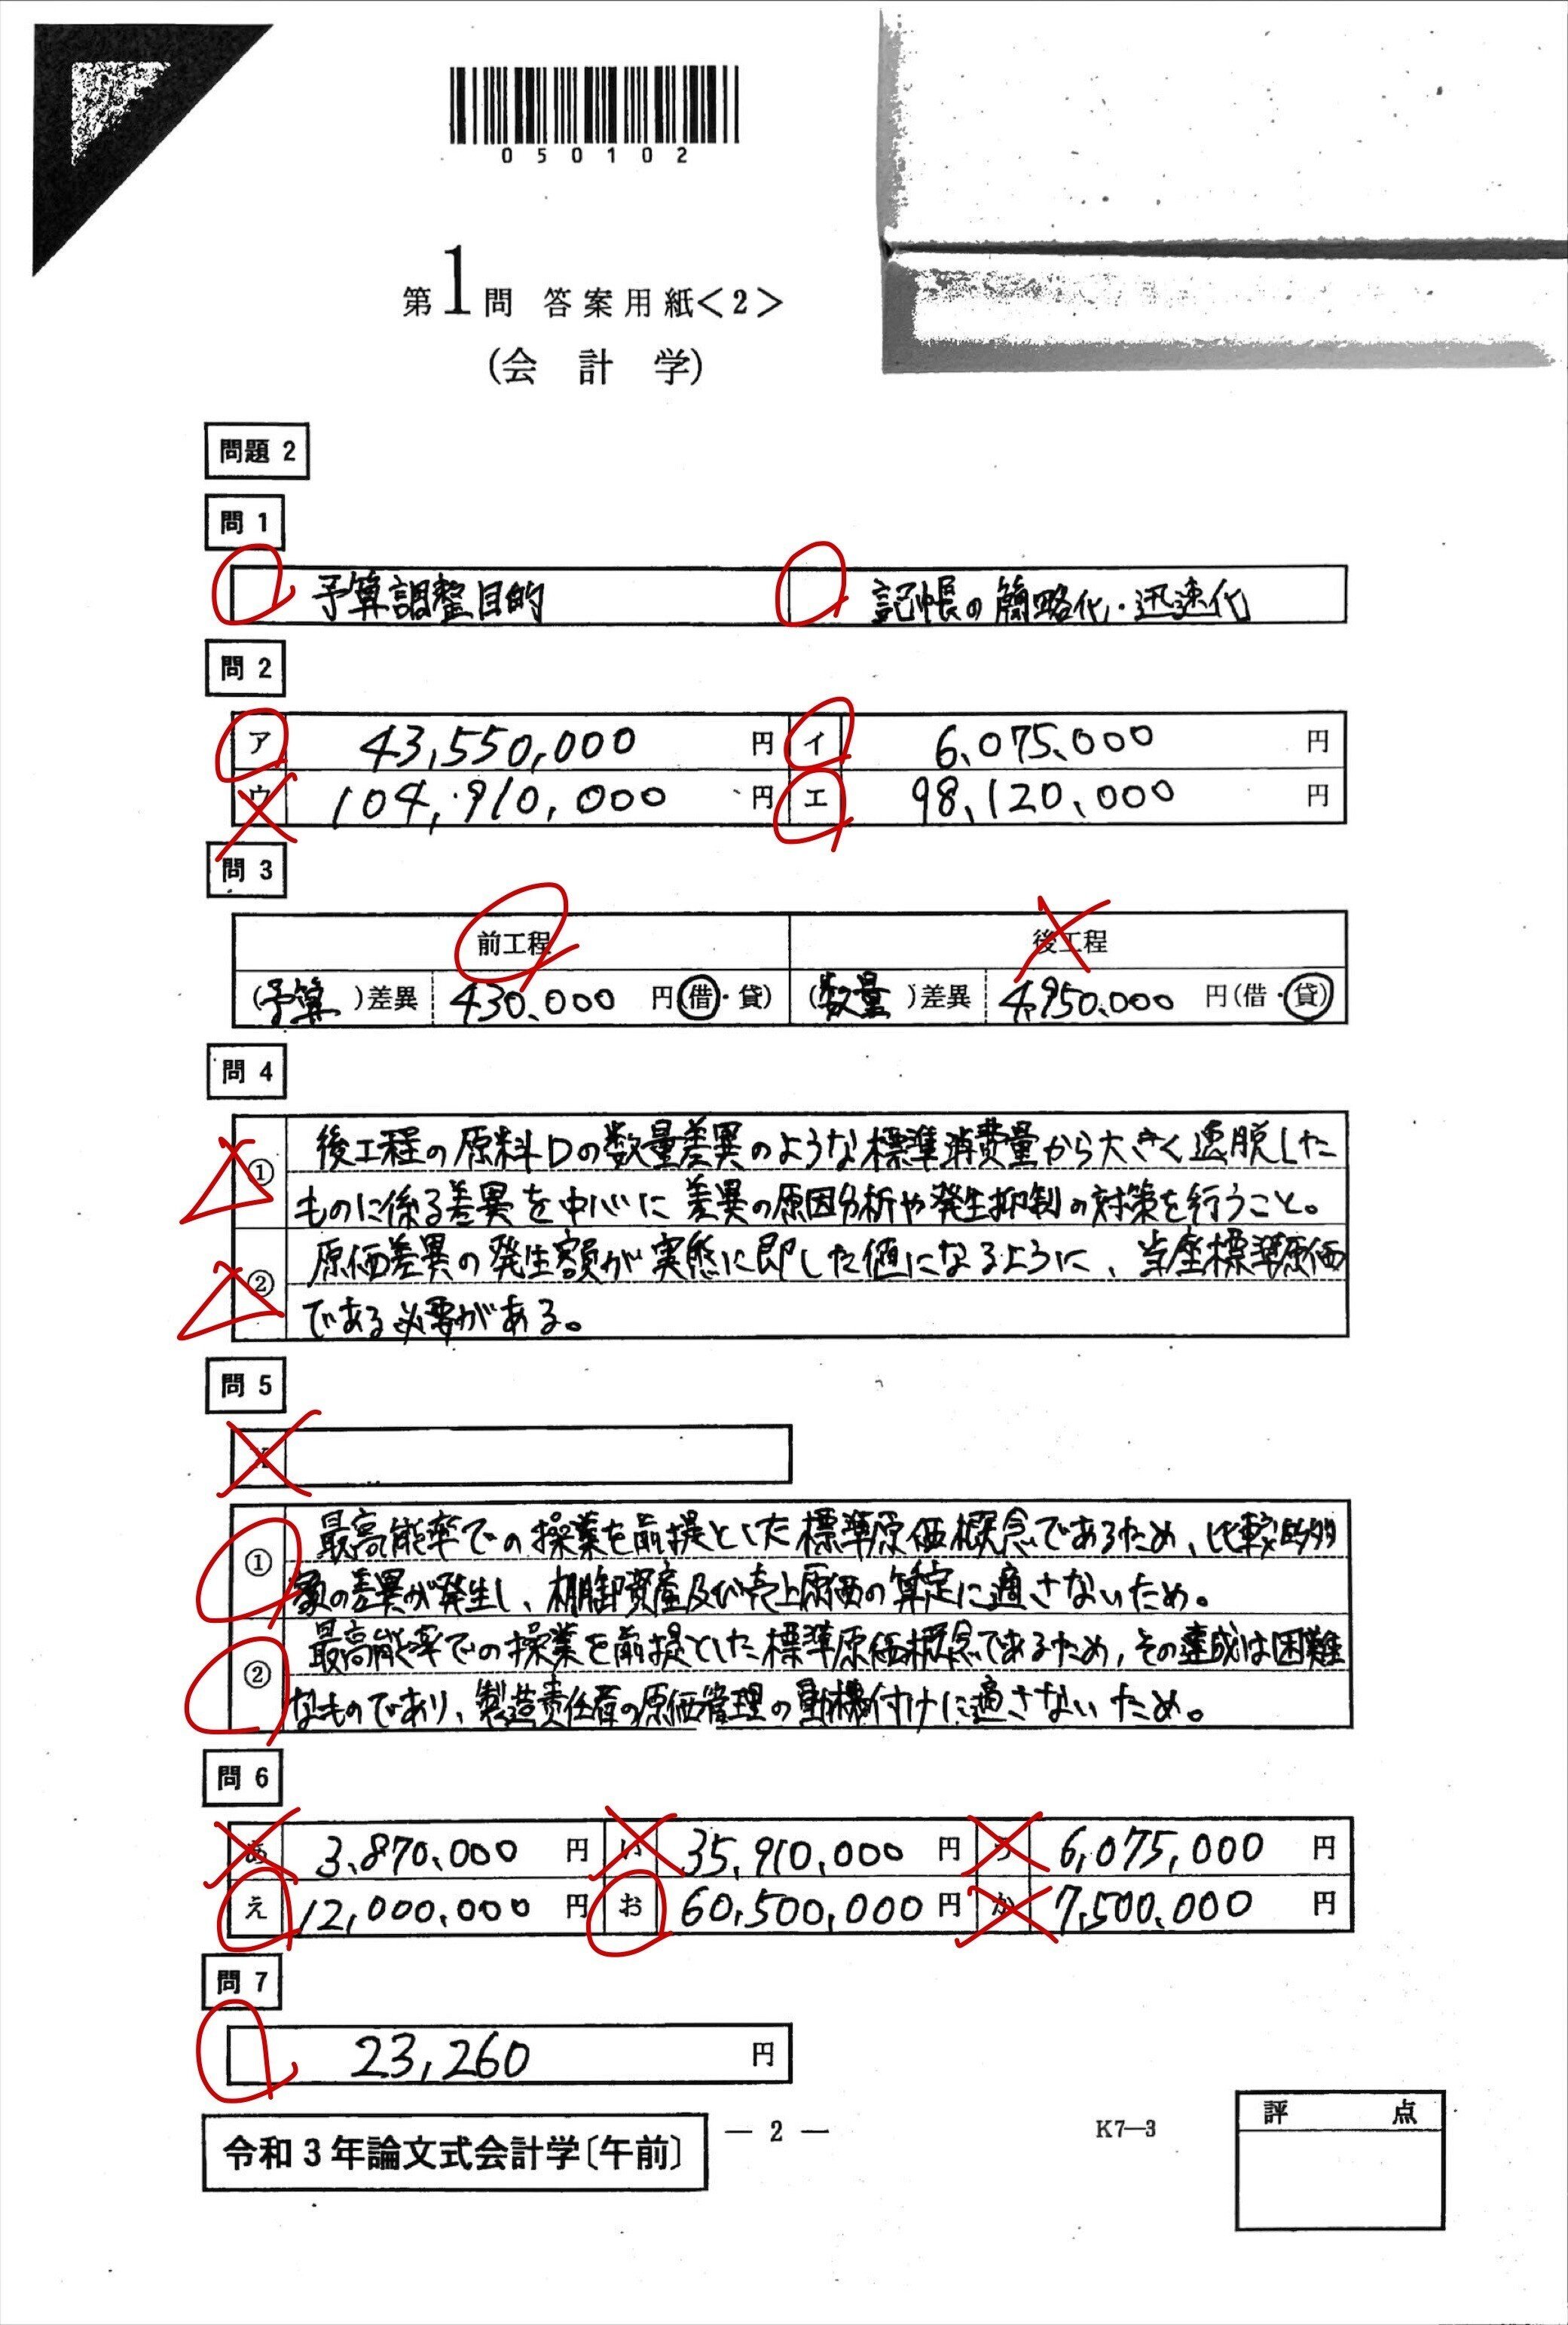 050102
第1問 答案用紙<2>
(会計学)
問題 2
問 1
予算調整目的 記帳の簡略化・迅速化
問 2
ア 43,550,000 円 イ 6,075,000 円
ウ 104,910,000 円 エ 98,120,000 円
問 3
前工程 後工程
(予算)差異 430,000 円(借・貸) (数量)差異 4,950,000 円(借・貸)
問 4
① 後工程の原料Dの数量差異のような標準消費量から大きく逸脱した
ものに係る差異を中心に差異の原因分析や発生抑制の対策を行うこと。
② 原価差異の発生額が実態に即した値になるように、当座標準原価
である必要がある。
問 5
① 最高能率での操業を前提とした標準原価概念であるため、比較的多
額の差異が発生し、棚卸資産及び売上原価の算定に適さないため。
② 最高能率での操業を前提とした標準原価概念であるため,その達成は困難
なものであり、製造責任者の原価管理の動機付けに適さないため。
問 6
あ 3,870,000 円 い 35,910,000 円 う 6,075,000 円
え 12,000,000 円 お 60,500,000 円 か 7,500,000 円
問 7
23,260 円
令和3年論文式会計学〔午前〕
— 2 —
K7—3
評 点